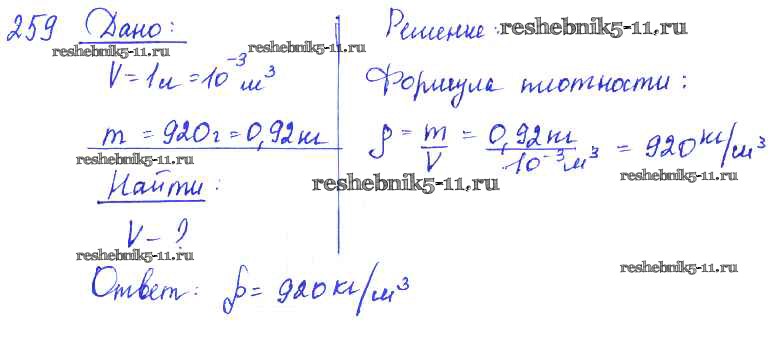 259 Дано:
V = 1л = 10⁻³ м³
m = 920г = 0,92кг
Найти:
V - ?
Решение:
Формула плотности:
ρ = m/V = 0,92кг/10⁻³м³ = 920 кг/м³
Ответ: ρ = 920 кг/м³
reshebnik5-11.ru
reshebnik5-11.ru
reshebnik5-11.ru
reshebnik5-11.ru
reshebnik5-11.ru
reshebnik5-11.ru
reshebnik5-11.ru
reshebnik5-11.ru